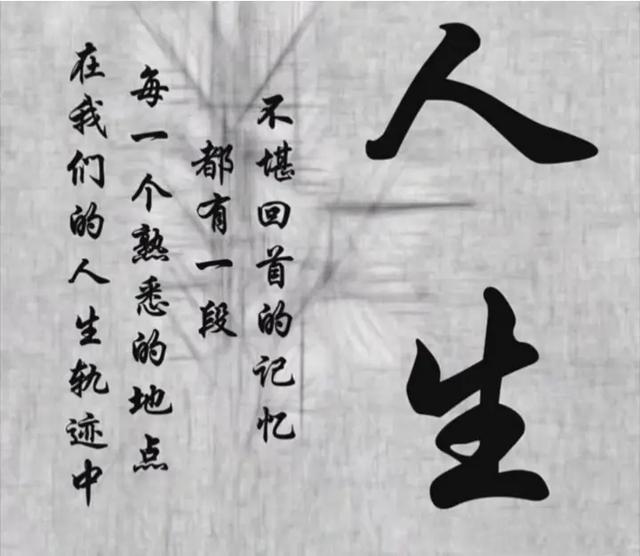 人生
在我们的人生轨迹中
每一个熟悉的地点
都有一段
不堪回首的记忆